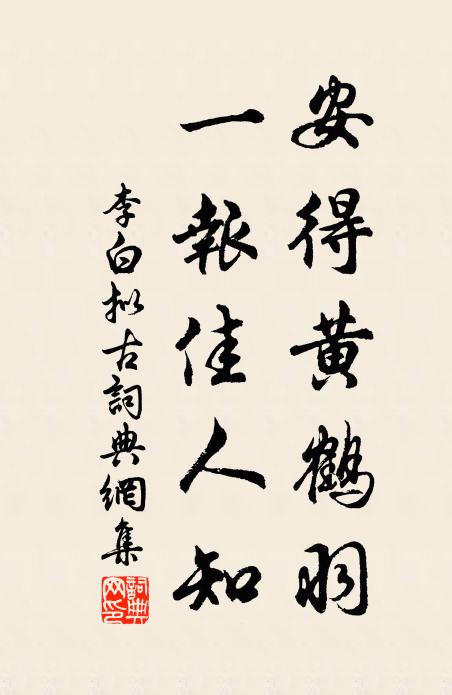 安得黄鶴羽
一報佳人知
李白拟古詞典網集
詞典網印